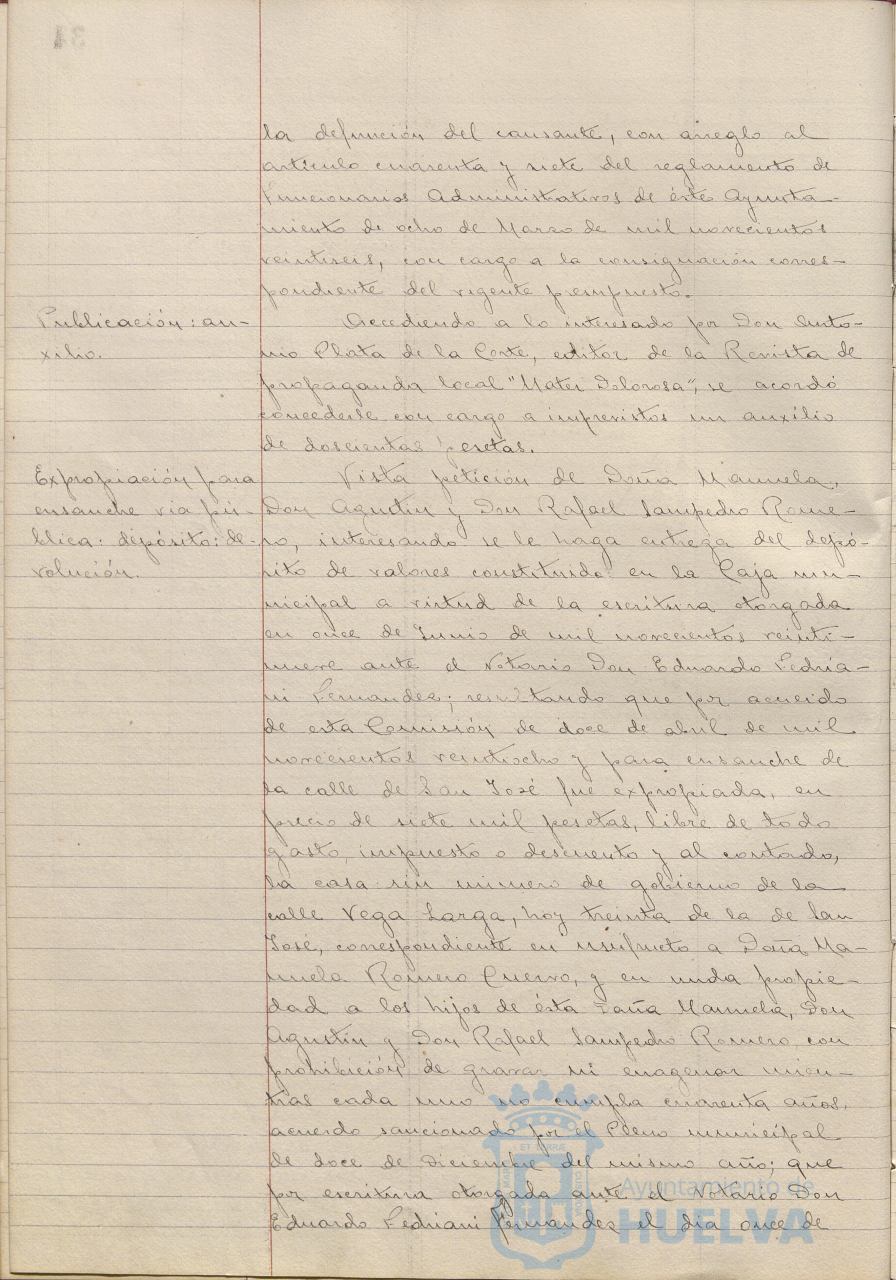 34
la defunción del causante, con arreglo al
artículo cuarenta y siete del reglamento de
Funcionarios Administrativos de éste Ayunta-
miento de ocho de Marzo de mil novecientos
veintiseis, con cargo a la consignación corres-
pondiente del vigente presupuesto.
Publicación: au-
xilio.
Accediendo a lo interesado por Don Anto-
nio Plata de la Corte, editor de la Revista de
propaganda local "Mater Dolorosa", se acordó
concederle con cargo a imprevistos un auxilio
de doscientas pesetas.
Expropiación para
ensanche via pú-
blica: depósito: de-
volución.
Vista petición de Doña Manuela,
Don Agustín y Don Rafael Sampedro Rome-
ro, interesando se le haga entrega del depó-
sito de valores constituido en la Caja mu-
nicipal a virtud de la escritura otorgada
en once de Junio de mil novecientos veinti-
nueve ante el Notario Don Eduardo Pedria-
ni Fernandez; resultando que por acuerdo
de esta Comisión de doce de abril de mil
novecientos veintiocho y para ensanche de
la calle de San José fue expropiada, en
precio de siete mil pesetas, libre de todo
gasto, impuesto o descuento y al contado,
la casa sin número de gobierno de la
calle Vega Larga, hoy treinta de la de San
José, correspondiente en usufructo a Doña Ma-
nuela Romero Cuervo, y en nuda propie-
dad a los hijos de ésta Doña Manuela, Don
Agustín y Don Rafael Sampedro Romero con
prohibición de gravar ni enagenar mien-
tras cada uno no cumpla cuarenta años,
acuerdo sancionado por el Pleno municipal
de doce de Diciembre del mismo año; que
por escritura otorgada ante el Notario Don
Eduardo Pedriani Fernandez el día once de
Ayuntamiento de
HUELVA